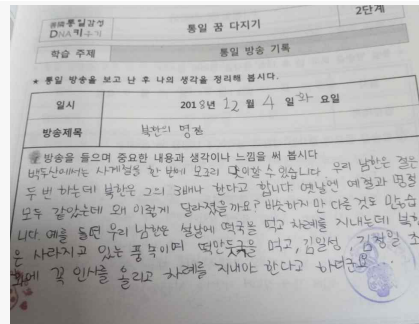 통일감성 DNA키우기
통일 꿈 다지기
2단계
학습 주제
통일 방송 기록
★ 통일 방송을 보고 난 후 나의 생각을 정리해 봅시다.
일시
2018년 12월 4일 화요일
방송제목
북한의 명절
방송을 들으며 중요한 내용과 생각이나 느낌을 써 봅시다
백두산에서는 사계절을 한 번에 모조리 맛이할 수 있습니다. 우리 남한은 절은
두 번 하는데 북한은 그의 3배나 한다고 합니다. 옛날엔 예절과 명절
모두 같았는데 왜 이렇게 달라졌을까요? 비슷하지만 다른 것도 있습
니다. 예를 들면 우리 남한은 설날에 떡국을 먹고 차례를 지내는데 북한
은 사라지고 있는 풍속이며 떡만둣국을 먹고, 김일성, 김정일 초
화에 꼭 인사를 올리고 차례를 지내야 한다고 하더군요